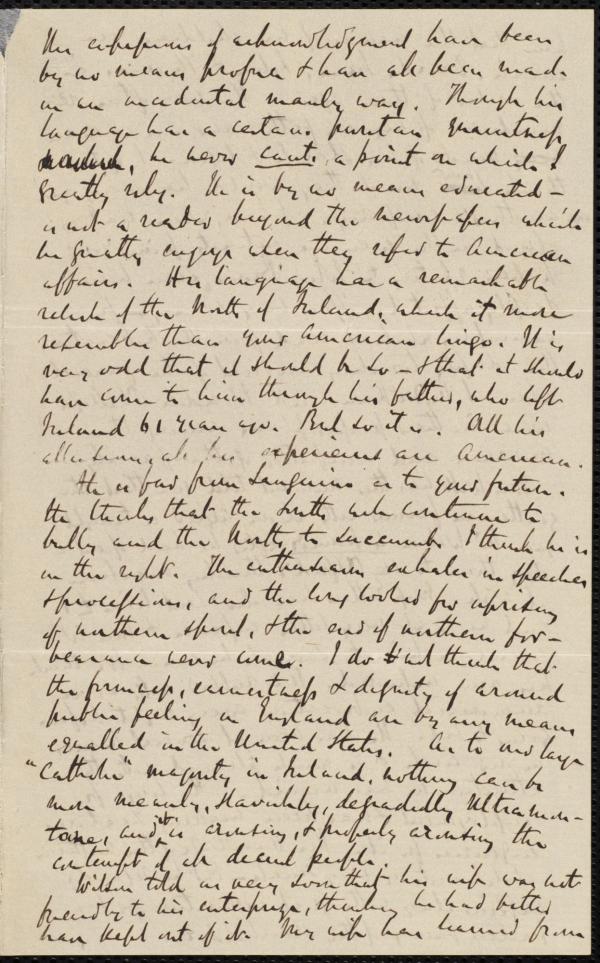 His expressions of acknowledgment have been
by no means profuse & have all been made
in an incidental manly way. Though his
language has a certain puritan quaintness
he never cants, a point on which I
greatly rely. He is by no means educated –
is not a reader beyond the newspapers which
he greatly enjoys when they refer to American
affairs. His language has a remarkable
relish of the North of Ireland, which it more
resembles than your American lingo. It is
very odd that it should be so – & that it should
have come to him through his father, who left
Ireland 61 years ago. But so it is. All his
allusions, all his experiences are American.
He is far from sanguine as to your future.
He thinks that the South will continue to
bully and the North to succumb. I think he is
in the right. The enthusiasm exhales in speeches
& processions, and the long looked for uprising
of northern spirit, & the end of northern for-
bearance never comes. I do not think that
the firmness, earnestness & dignity of aroused
public feeling in England are by any means
equalled in the United States. As to our large
"Catholic" majority in Ireland, nothing can be
more meanly, slavishly, degradedly Ultramon-
tane, and it is arousing, & properly arousing the
contempt of all decent people.
Wilson told us very soon that his wife was not
friendly to his enterprize, thinking he had better
have kept out of it. My wife has learned from